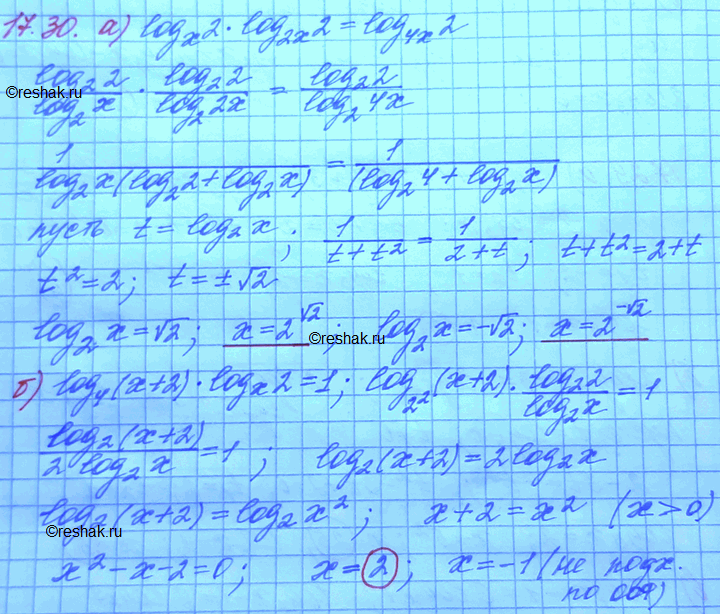 17.30. а) log_x 2 · log_2x 2 = log_4x 2
log_2 2 / log_2 x · log_2 2 / log_2 2x = log_2 2 / log_2 4x
©reshak.ru
1 / log_2 x (log_2 2 + log_2 x) = 1 / (log_2 4 + log_2 x)
пусть t = log_2 x ; 1 / t + t² = 1 / 2 + t ; t + t² = 2 + t
t² = 2 ; t = ±√2
log_2 x = √2 ; x = 2^√2 ; log_2 x = -√2 ; x = 2^-√2
©reshak.ru
б) log_4 (x+2) · log_x 2 = 1 ; log_2² (x+2) · log_2 2 / log_2 x = 1
log_2 (x+2) / 2 log_2 x = 1 ; log_2 (x+2) = 2 log_2 x
log_2 (x+2) = log_2 x² ; x + 2 = x² (x > 0)
©reshak.ru
x² - x - 2 = 0 ; x = 2 ; x = -1 (не подх.
по одз)